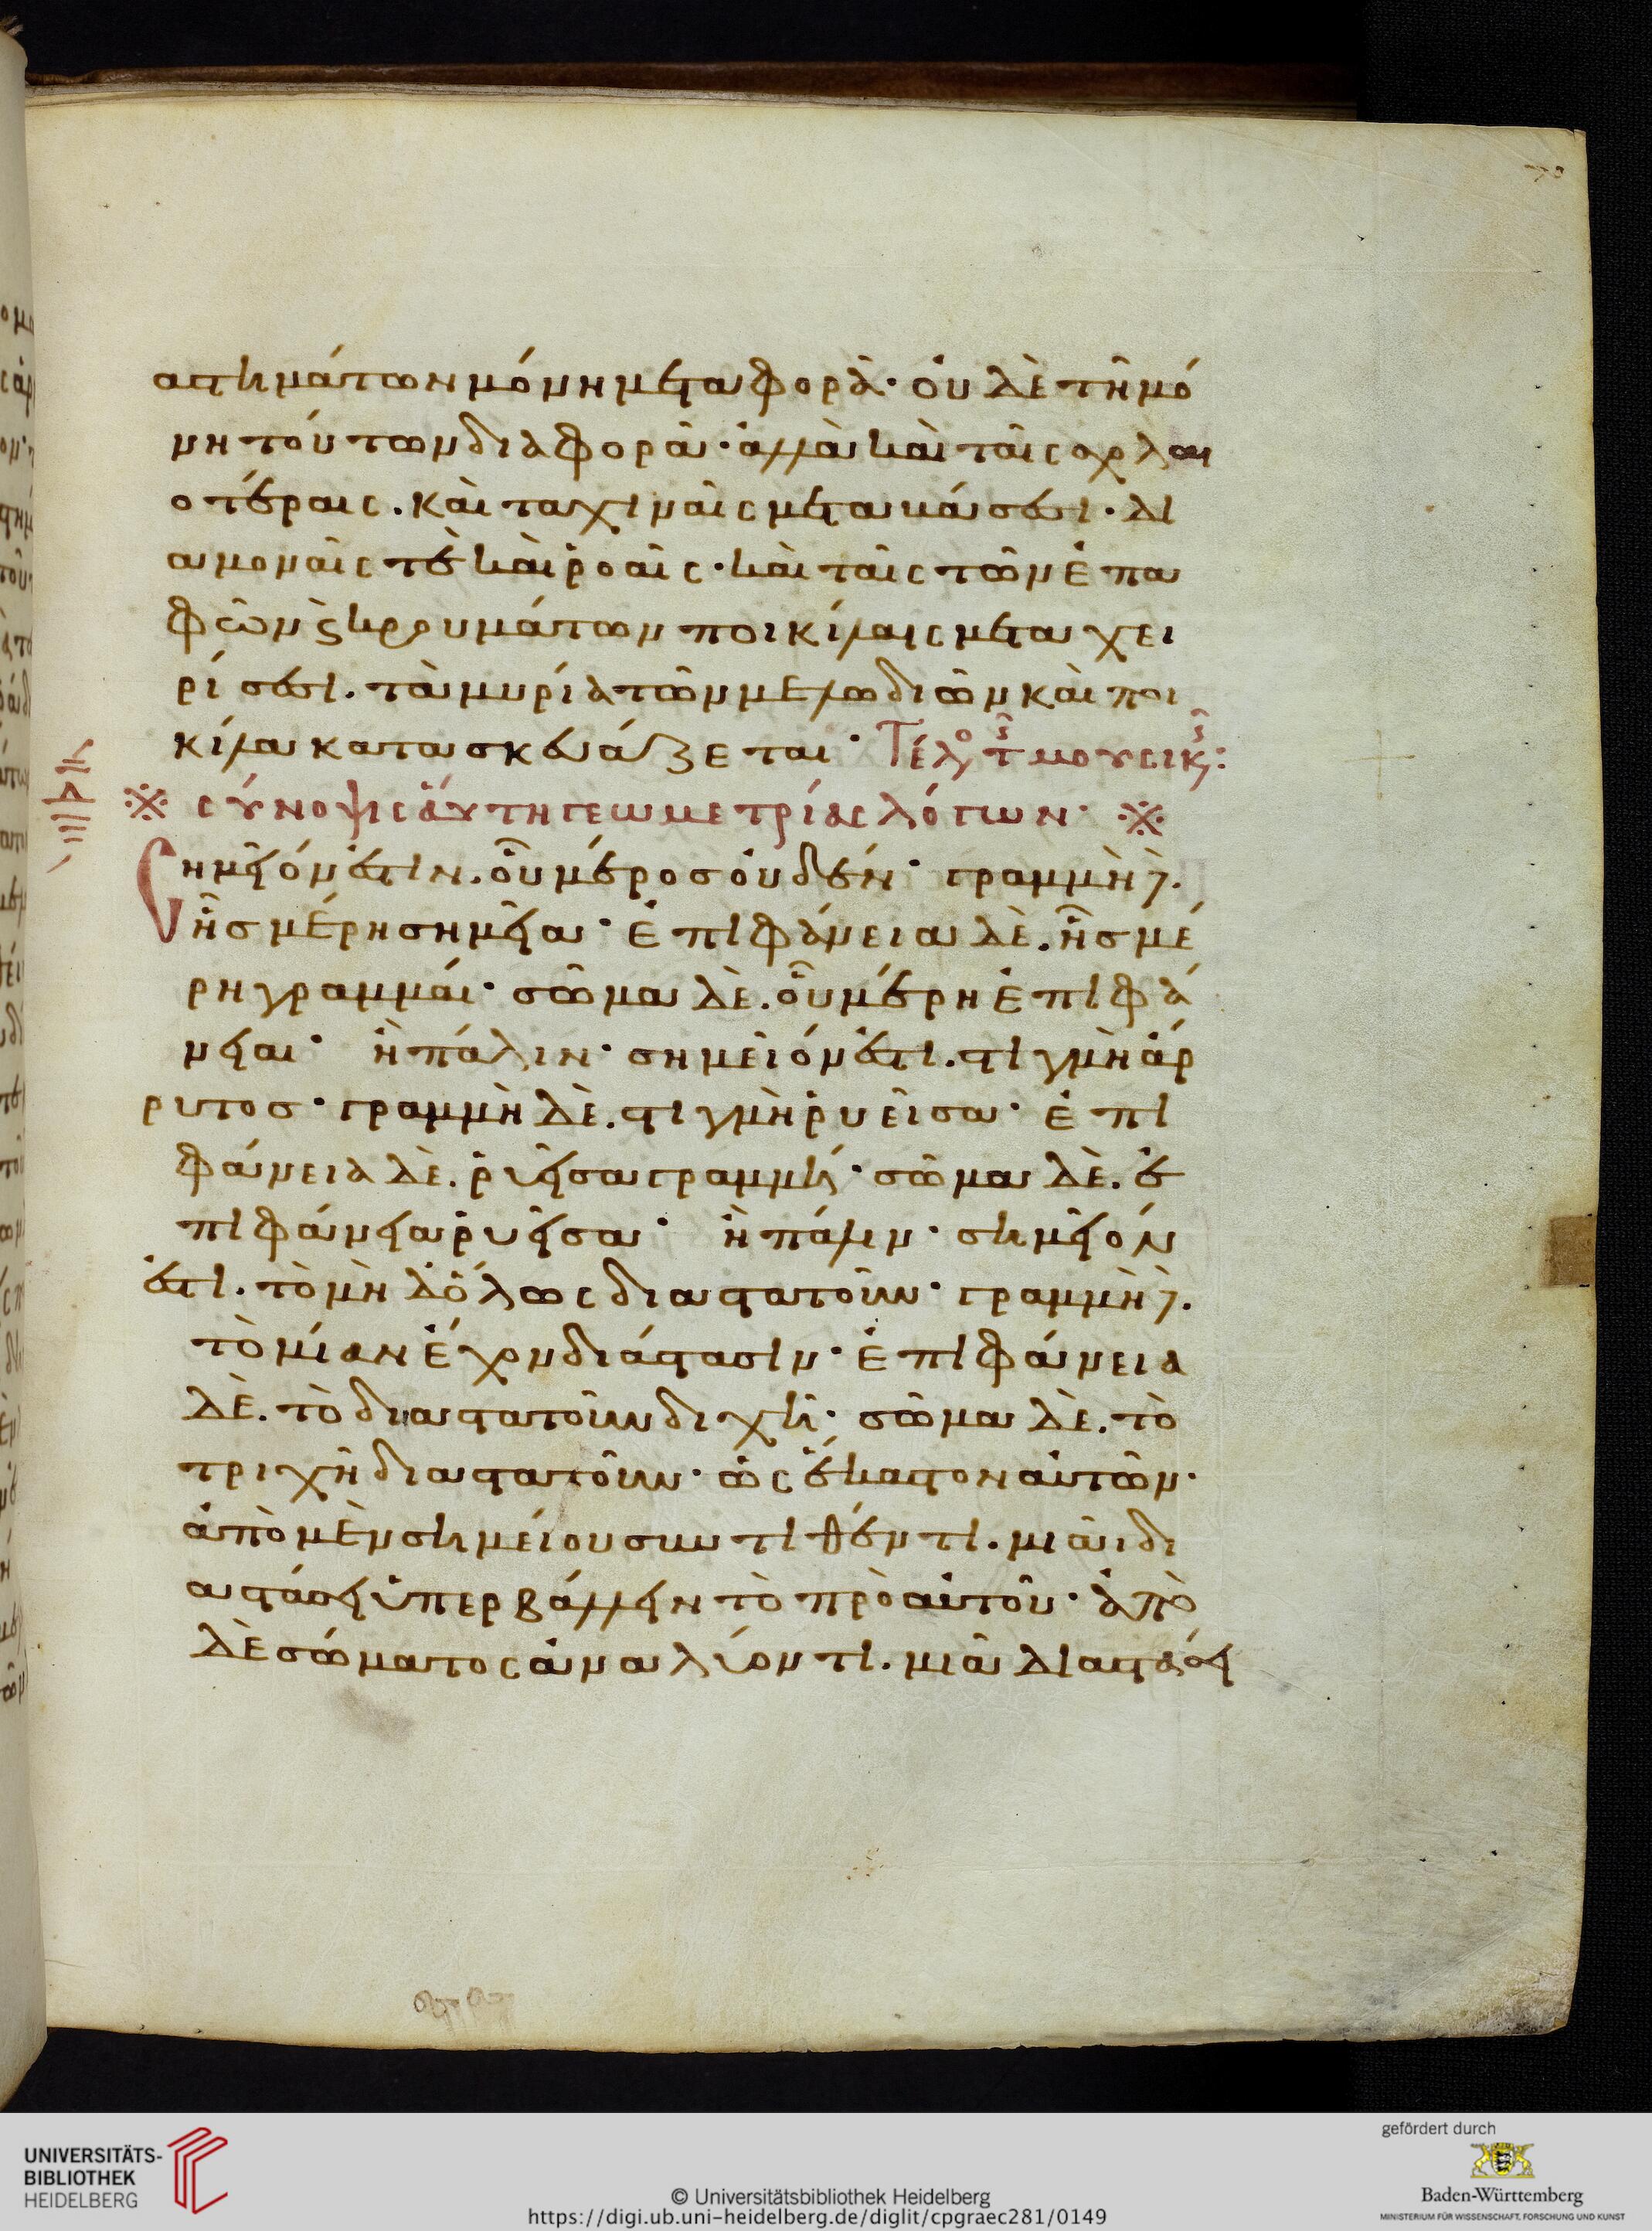 70
αστημάτων μόνη μεταφορᾶ· οὐδὲ τῆ μό
νη τούτων διαφορᾶ· ἀλλὰ καὶ ταῖς σχολαι
οτέραις. καὶ ταχιναῖς μετακινήσεσι· δι
αμοναῖς τὲ καὶ ῥοαῖς· καὶ ταῖς τῶν ἐπα
φῶν κρουμάτων ποικίλαις μεταχει
ρίσεσι. τὰ μυρία τῶν μελωδιῶν καὶ ποι
κίλα κατασκευάζεται· Τέλος τῆς μουσικῆς:
※ σύνοψις ἀυτὴ γεωμετρίας λόγων· ※
Σημεῖόν ἐστιν. οὗ μέρος οὐδέν· γραμμὴ δὲ.
ἧς μέρη σημεῖα· ἐπιφάνεια δὲ. ἧς μέ
ρη γραμμάι· σῶμα δὲ. οὗ μέρη ἐπιφά
νειαι· ἢ πάλιν· σημεῖόν ἐστι. στιγμὴ ἄρ
ρυτος· γραμμὴ δὲ. στιγμὴ ῥυεῖσα· ἐπι
φάνεια δὲ. ῥυεῖσα γραμμή· σῶμα δὲ. ἐ
πιφάνεια ῥυεῖσα· ἢ πάλιν· σημεῖον
ἐστι. τὸ μηδόλως διαστατοῦν· γραμμὴ δὲ.
τὸ μίαν ἔχον διάστασιν· ἐπιφάνεια
δὲ. τὸ διαστατοῦν διχῆ· σῶμα δὲ. τὸ
τριχῆ διαστατοῦν· ὡς ἕκαστον αὐτῶν·
ἀπὸ μὲν σημείου συντιθέντι. μιᾶι δι
αστάσει ὑπερβάλλειν τὸ πρὸ αὐτοῦ· ἀπὸ
δὲ σώματος ἀναλύοντι. μιᾶ διαστάσει
UNIVERSITÄTS-
BIBLIOTHEK
HEIDELBERG
© Universitätsbibliothek Heidelberg
https://digi.ub.uni-heidelberg.de/diglit/cpgraec281/0149
gefördert durch
Baden-Württemberg
MINISTERIUM FÜR WISSENSCHAFT, FORSCHUNG UND KUNST